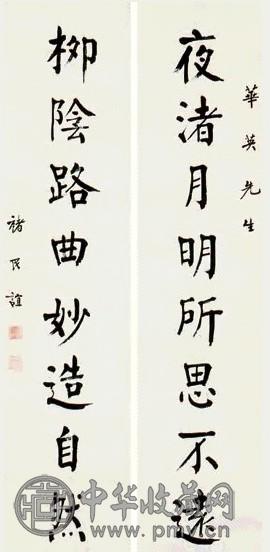 華英先生
夜渚月明所思不遠
柳陰路曲妙造自然
褚民誼
中华收藏网
www.pmvip.cn